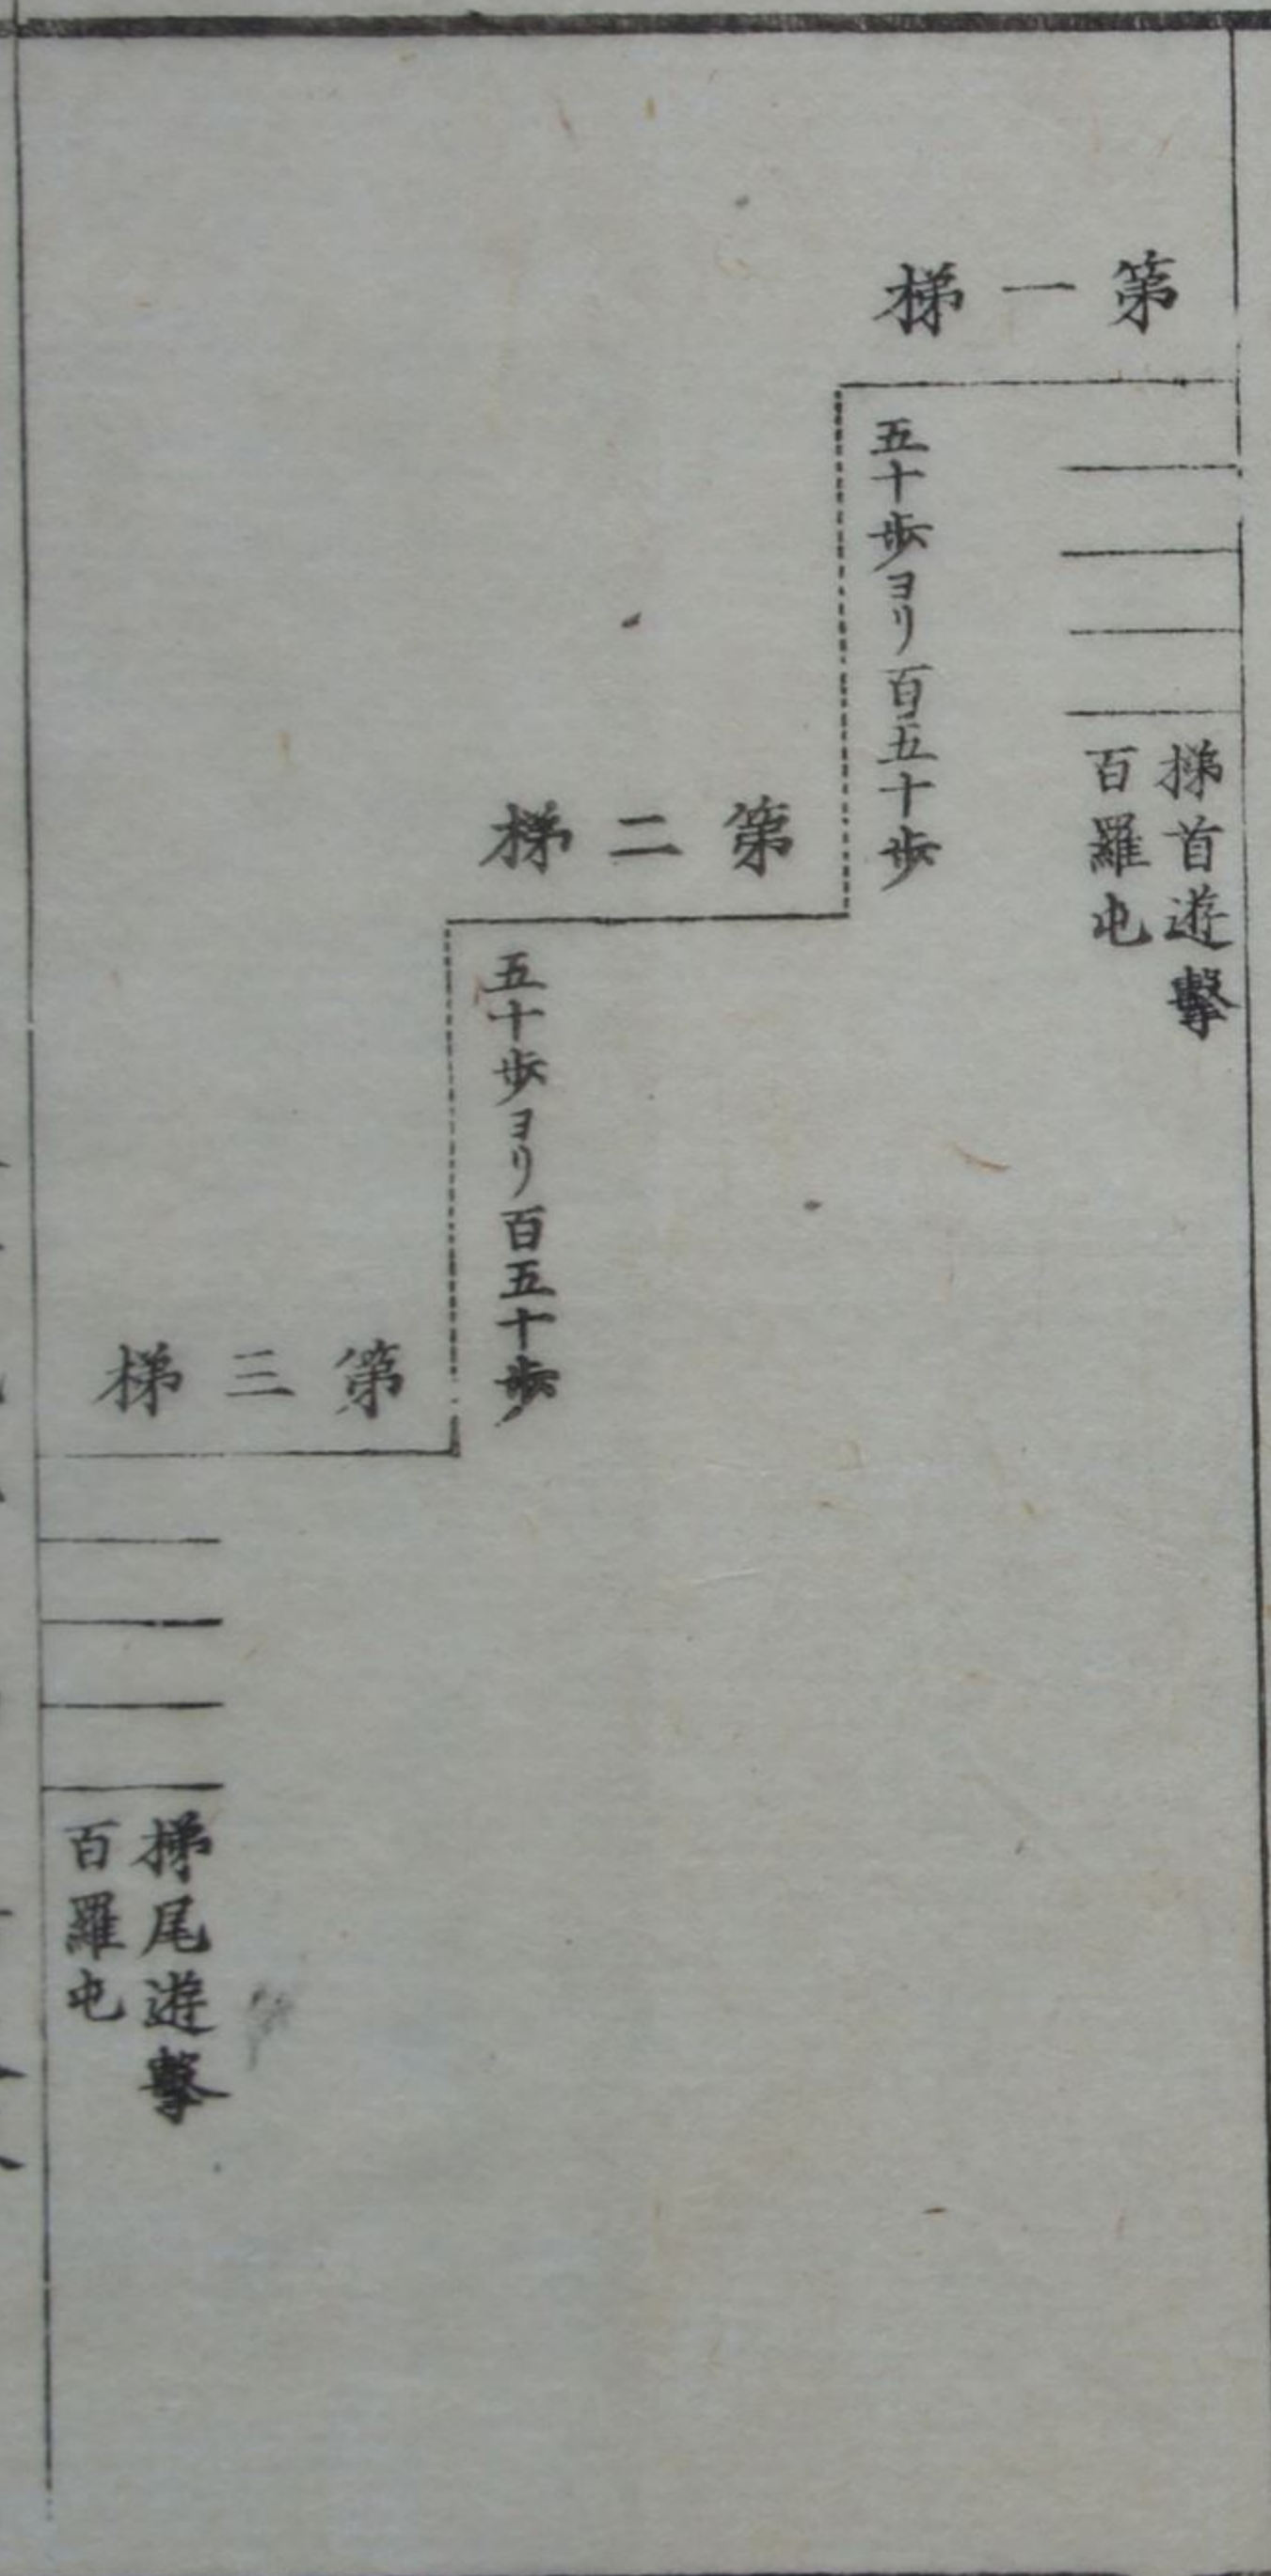 第一梯
梯首遊擊
百羅屯
五十歩ヨリ百五十歩
第二梯
五十歩ヨリ百五十歩
第三梯
梯尾遊擊
百羅屯